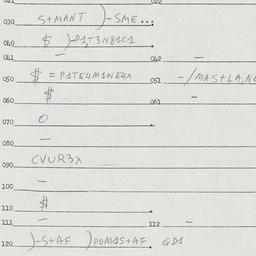 021 022
030 S+MANT )-SME...
040 $ )-P1T3N81C1
041 — 042 —
050 $ = P1TE4M1WE4X 051 -/MAS+LA,NE
060 $ 061 —
070 O
080 —
090 CVUR3X
100 —
110 $
111 — 112 —
120 )-S+AF )POM1S+AF GD1